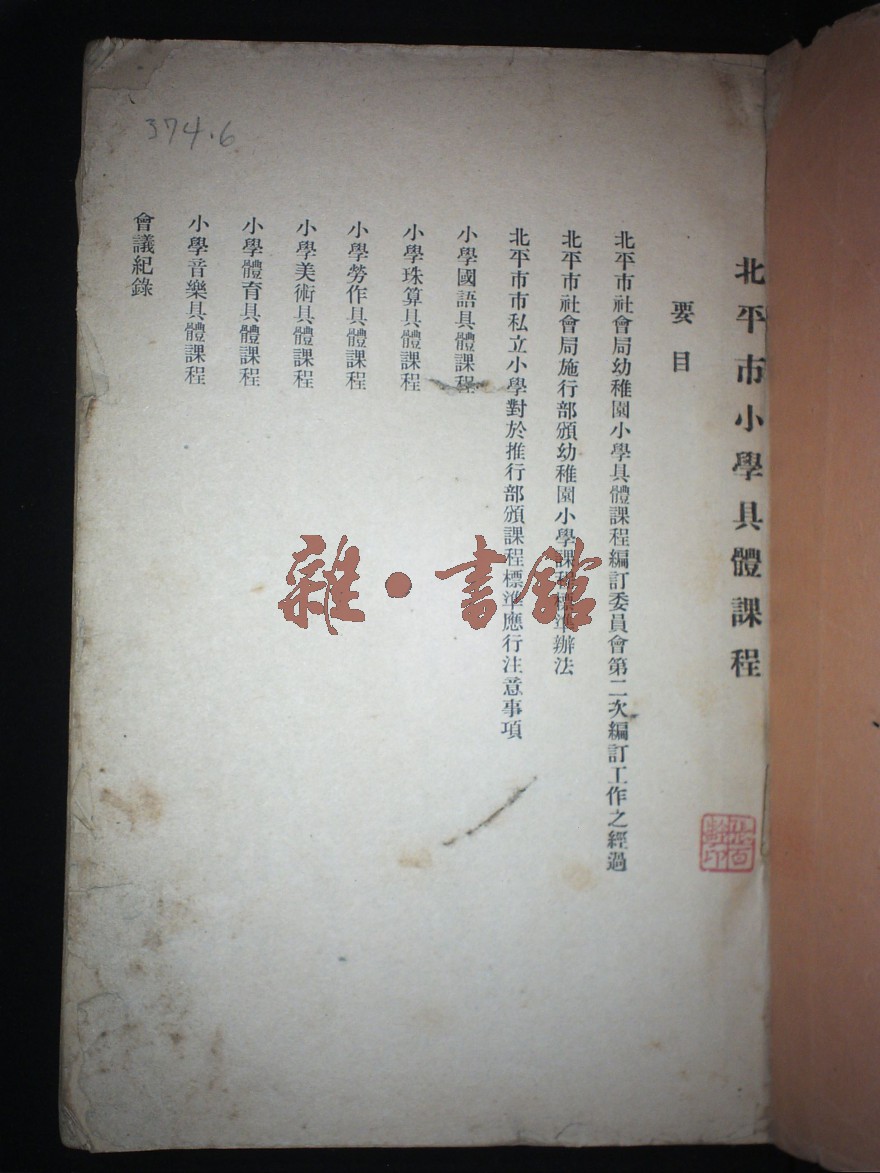 北平市小學具體課程
要目
北平市社會局幼稚園小學具體課程編訂委員會第二次編訂工作之經過
北平市社會局施行部頒幼稚園小學課程標準辦法
北平市市私立小學對於推行部頒課程標準應行注意事項
小學國語具體課程
小學珠算具體課程
小學勞作具體課程
小學美術具體課程
小學體育具體課程
小學音樂具體課程
會議紀錄
374.6
雜·書館